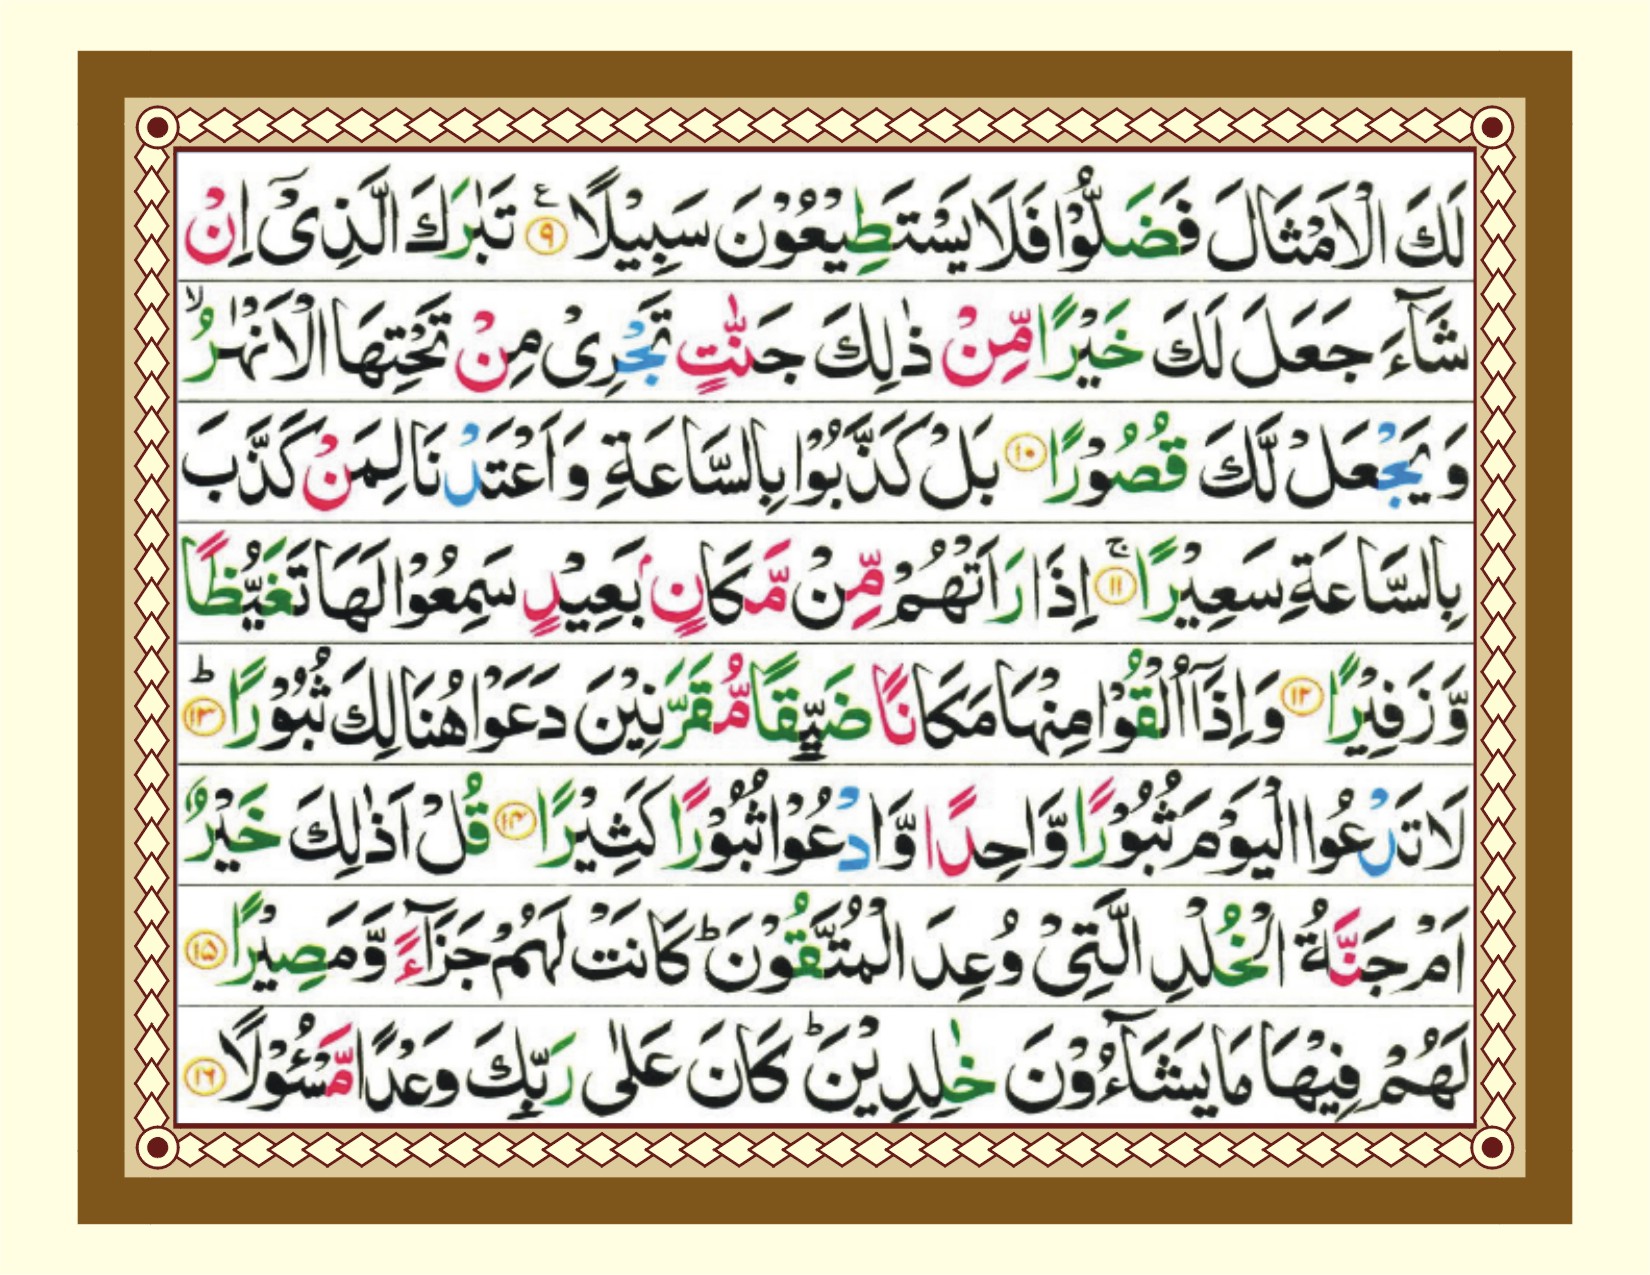 لَكَ الْاَمْثَالَ فَضَلُّوْا فَلَا يَسْتَطِيْعُوْنَ سَبِيْلًا ۹ ع تَبٰرَكَ الَّذِىْۤ اِنْ
شَآءَ جَعَلَ لَكَ خَيْرًا مِّنْ ذٰلِكَ جَنّٰتٍ تَجْرِىْ مِنْ تَحْتِهَا الْاَنْهٰرُ ۙ
وَ يَجْعَلْ لَّكَ قُصُوْرًا ۱۰ بَلْ كَذَّبُوْا بِالسَّاعَةِ وَ اَعْتَدْنَا لِمَنْ كَذَّبَ
بِالسَّاعَةِ سَعِيْرًا ۱۱ ۚ اِذَا رَاَتْهُمْ مِّنْ مَّكَانٍۭ بَعِيْدٍ سَمِعُوْا لَهَا تَغَيُّظًا
وَّ زَفِيْرًا ۱۲ وَ اِذَاۤ اُلْقُوْا مِنْهَا مَكَانًا ضَيِّقًا مُّقَرَّنِيْنَ دَعَوْا هُنَالِكَ ثُبُوْرًا ۱۳ ؕ
لَا تَدْعُوا الْيَوْمَ ثُبُوْرًا وَّاحِدًا وَّ ادْعُوْا ثُبُوْرًا كَثِيْرًا ۱۴ قُلْ اَذٰلِكَ خَيْرٌ
اَمْ جَنَّةُ الْخُلْدِ الَّتِىْ وُعِدَ الْمُتَّقُوْنَ ؕ كَانَتْ لَهُمْ جَزَآءً وَّ مَصِيْرًا ۱۵
لَهُمْ فِيْهَا مَا يَشَآءُوْنَ خٰلِدِيْنَ ؕ كَانَ عَلٰى رَبِّكَ وَعْدًا مَّسْـُٔوْلًا ۱۶